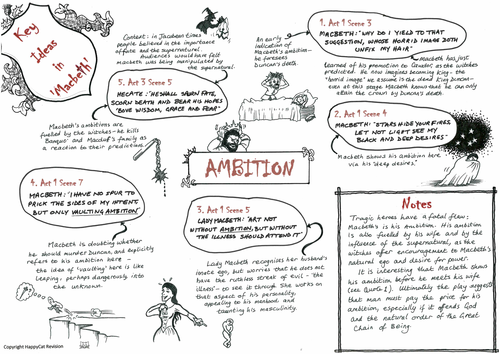 Key
Ideas
in
'Macbeth'
Context: in Jacobean times
people believed in the importance
of fate and the supernatural.
Audiences would have felt
Macbeth was being manipulated by
the supernatural.
5. Act 3 Scene 5
HECATE: 'HE SHALL SPURN FATE,
SCORN DEATH AND BEAR HIS HOPES
'BOVE WISDOM, GRACE AND FEAR'
Macbeth's ambitions are
fuelled by the witches - he kills
Banquo and Macduff's family as
a reaction to their predictions.
4. Act 1 Scene 7
MACBETH: 'I HAVE NO SPUR TO
PRICK THE SIDES OF MY INTENT,
BUT ONLY VAULTING AMBITION'
Macbeth is doubting whether
he should murder Duncan, and explicitly
refers to his ambition here -
the idea of 'vaulting' here is like
leaping - perhaps dangerously into
the unknown.
Copyright HappyCat Revision
An early
indication of
Macbeth's ambition -
he foresees
Duncan's death.
AMBITION
3. Act 1 Scene 5
LADY MACBETH: 'ART NOT
WITHOUT AMBITION, BUT WITHOUT
THE ILLNESS SHOULD ATTEND IT'
Lady Macbeth recognises her husband's
innate ego, but worries that he does not
have the ruthless streak of evil - 'the
illness' - to see it through. She works on
that aspect of his personality,
appealing to his manhood and
taunting his masculinity.
1. Act 1 Scene 3
MACBETH: 'WHY DO I YIELD TO THAT
SUGGESTION, WHOSE HORRID IMAGE DOTH
UNFIX MY HAIR'
Macbeth has just
learned of his promotion to Cawdor as the witches
predicted. He now imagines becoming king - the
'horrid image' we assume is the dead King Duncan -
even at this stage Macbeth knows that he can only
attain the crown by Duncan's death.
2. Act 1 Scene 4
MACBETH: 'STARS HIDE YOUR FIRES,
LET NOT LIGHT SEE MY
BLACK AND DEEP DESIRES'
Macbeth shows his ambition here
via his 'deep desires.'
Notes
Tragic heroes have a fatal flaw:
Macbeth's is his ambition. His ambition
is also fuelled by his wife and by the
influence of the supernatural, as the
witches offer encouragement to Macbeth's
natural ego and desire for power.
It is interesting that Macbeth shows
his ambition before he meets his wife
(see Quote 1). Ultimately the play suggests
that man must pay the price for his
ambition, especially if it offends God
and the natural order of the Great
Chain of Being.